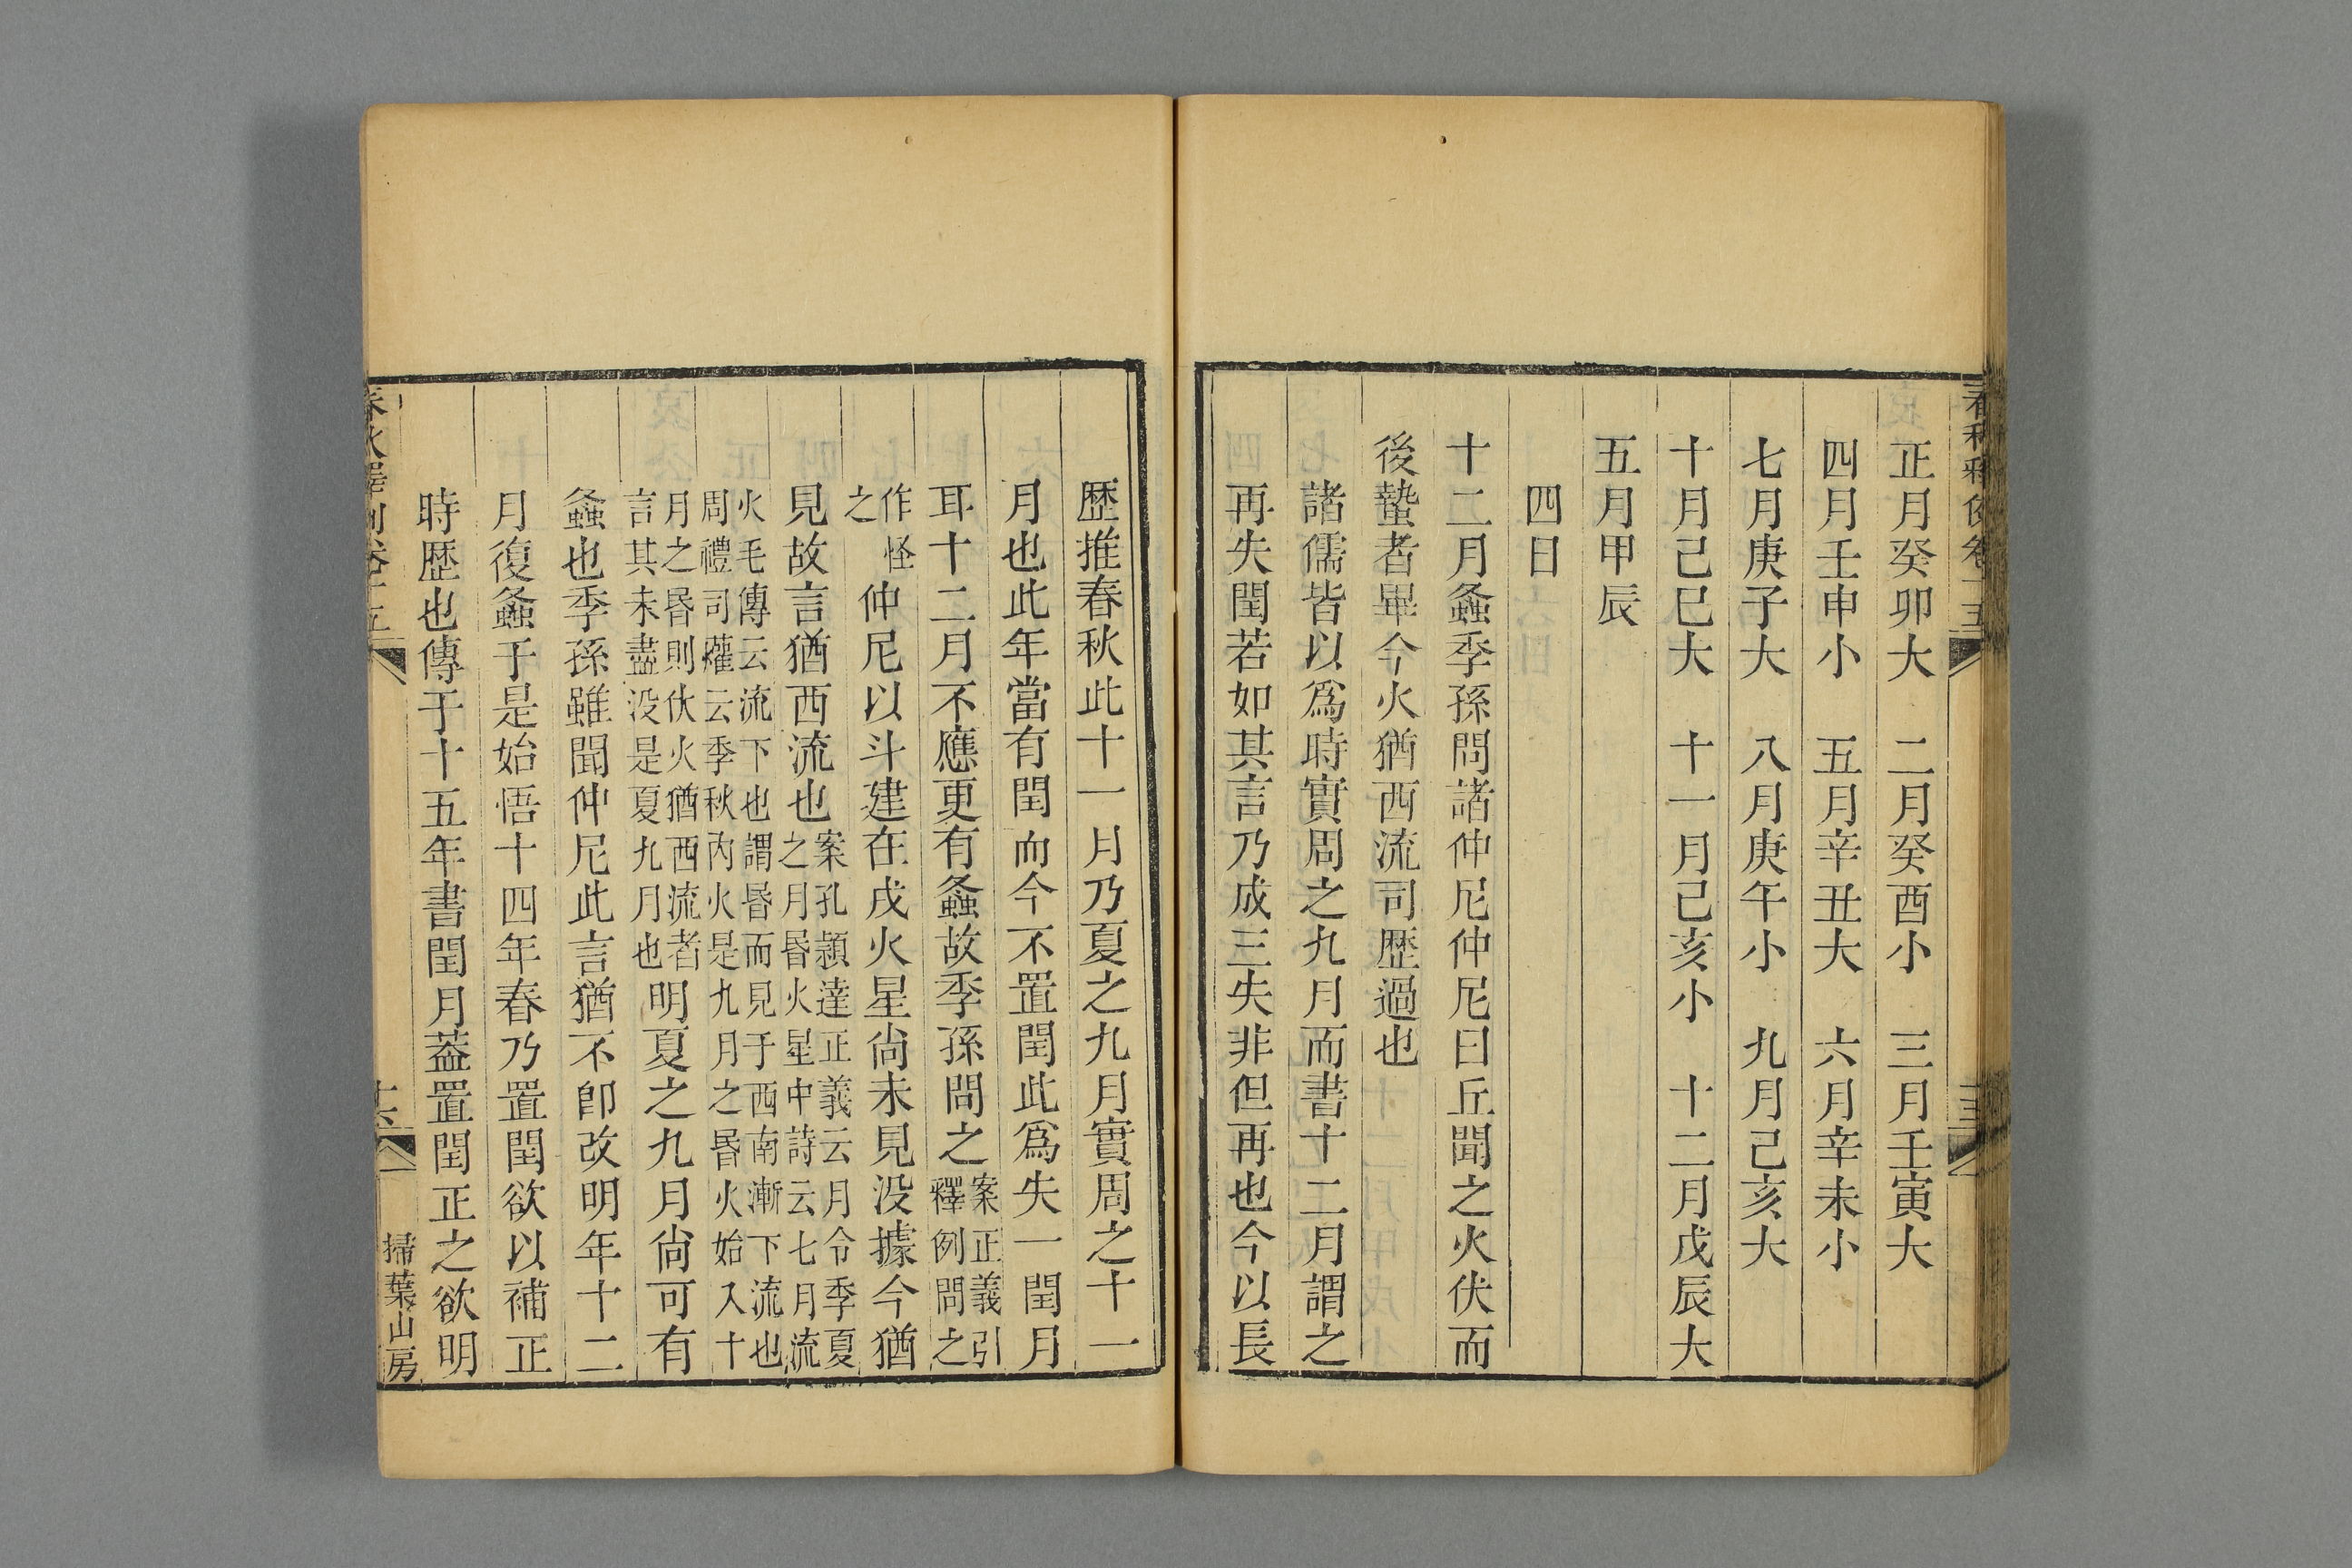 正月癸卯大　二月癸酉小　三月壬寅大
四月壬申小　五月辛丑大　六月辛未小
七月庚子大　八月庚午小　九月己亥大
十月己巳大　十一月己亥小　十二月戊辰大
五月甲辰
四日
十二月螽季孫問諸仲尼仲尼曰丘聞之火伏而
後蟄者畢今火猶西流司歷過也
諸儒皆以爲時實周之九月而書十二月謂之
再失閏若如其言乃成三失非但再也今以長
歷推春秋此十一月乃夏之九月實周之十一
月也此年當有閏而今不置閏此爲失一閏月
耳十二月不應更有螽故季孫問之案正義引釋例問之
作怪之仲尼以斗建在戌火星尙未見没據今猶
見故言猶西流也案孔穎達正義云月令季夏之月昬火星中詩云七月流
火毛傳云流下也謂昬而見于西南漸下流也周禮司爟云季秋內火是九月之昬火始入十
月之昬則伏火猶西流者言其未盡没是夏九月也明夏之九月尙可有
螽也季孫雖聞仲尼此言猶不卽改明年十二
月復螽于是始悟十四年春乃置閏欲以補正
時歷也傳于十五年書閏月葢置閏正之欲明
春秋釋例卷十五
十六
掃葉山房